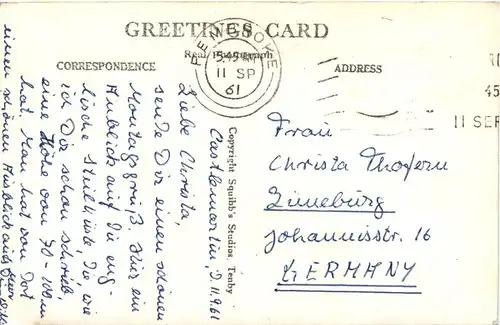 GREETINGS CARD
Real Photograph
CORRESPONDENCE
ADDRESS
PEMBROKE
5.45 PM
11 SP
61
45
11 SEP
Copyright Squibb's Studios, Tenby
Castlemartin, D. 11.9.61
Liebe Christa,
sende Dir einen schönen
Montagsgruß. Hier ein
Anblick auf die eng-
lische Steilküste, die, wie
ich Dir schon schrieb,
eine Höhe von 70-100 m
hat. Man hat von dort
einen schönen Ausblick aufs
Frau
Christa
Lüneburg
Johannisstr. 16
GERMANY